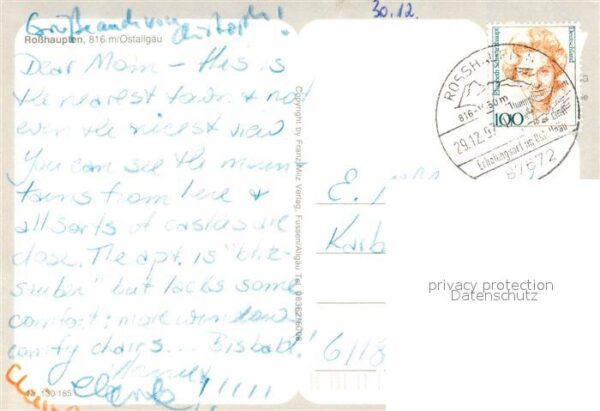 Grüße auch von
30.12.
Roßhaupten, 816 m/Ostallgäu
Dear Mom – this is
the nearest town & not
even the nicest view
You can see the moun-
tains from here &
all sorts of castles are
close. The apt. is "blitz-
sauber" but lacks some
comfort: more windows
comfy chairs... Bis bald!
130/185
Copyright by Franz Milz Verlag, Füssen/Allgäu Tel. 08362/6008
Deutschland
Elisabeth Schwarzhaupt
100
ROSSH
816-1050 m
29.12.97
Erholungsort im Ostallgäu
87672
E.
Karb
privacy protection
Datenschutz
6118